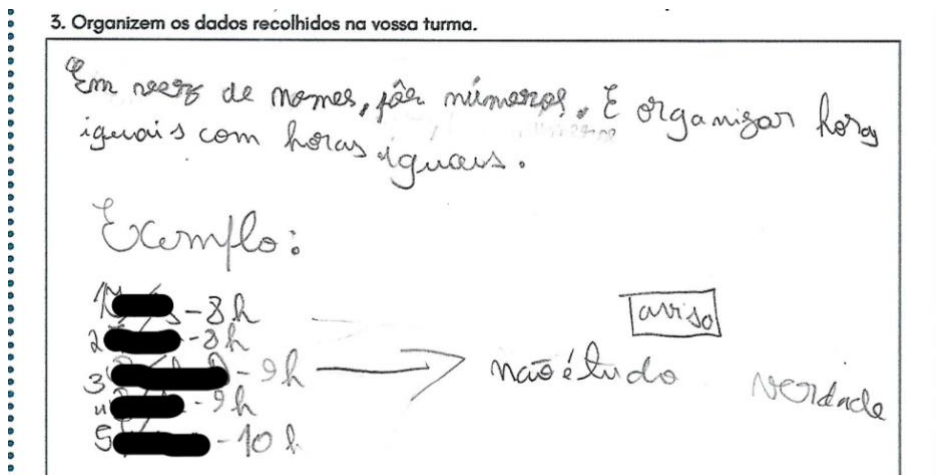 3. Organizem os dados recolhidos na vossa turma.
Em veez de nomes, pôr números. E organizar horas
iguais com horas iguais.
Exemplo:
1 - 8h
2 - 8h
3 - 9h
4 - 9h
5 - 10h
aviso
não é tudo verdade